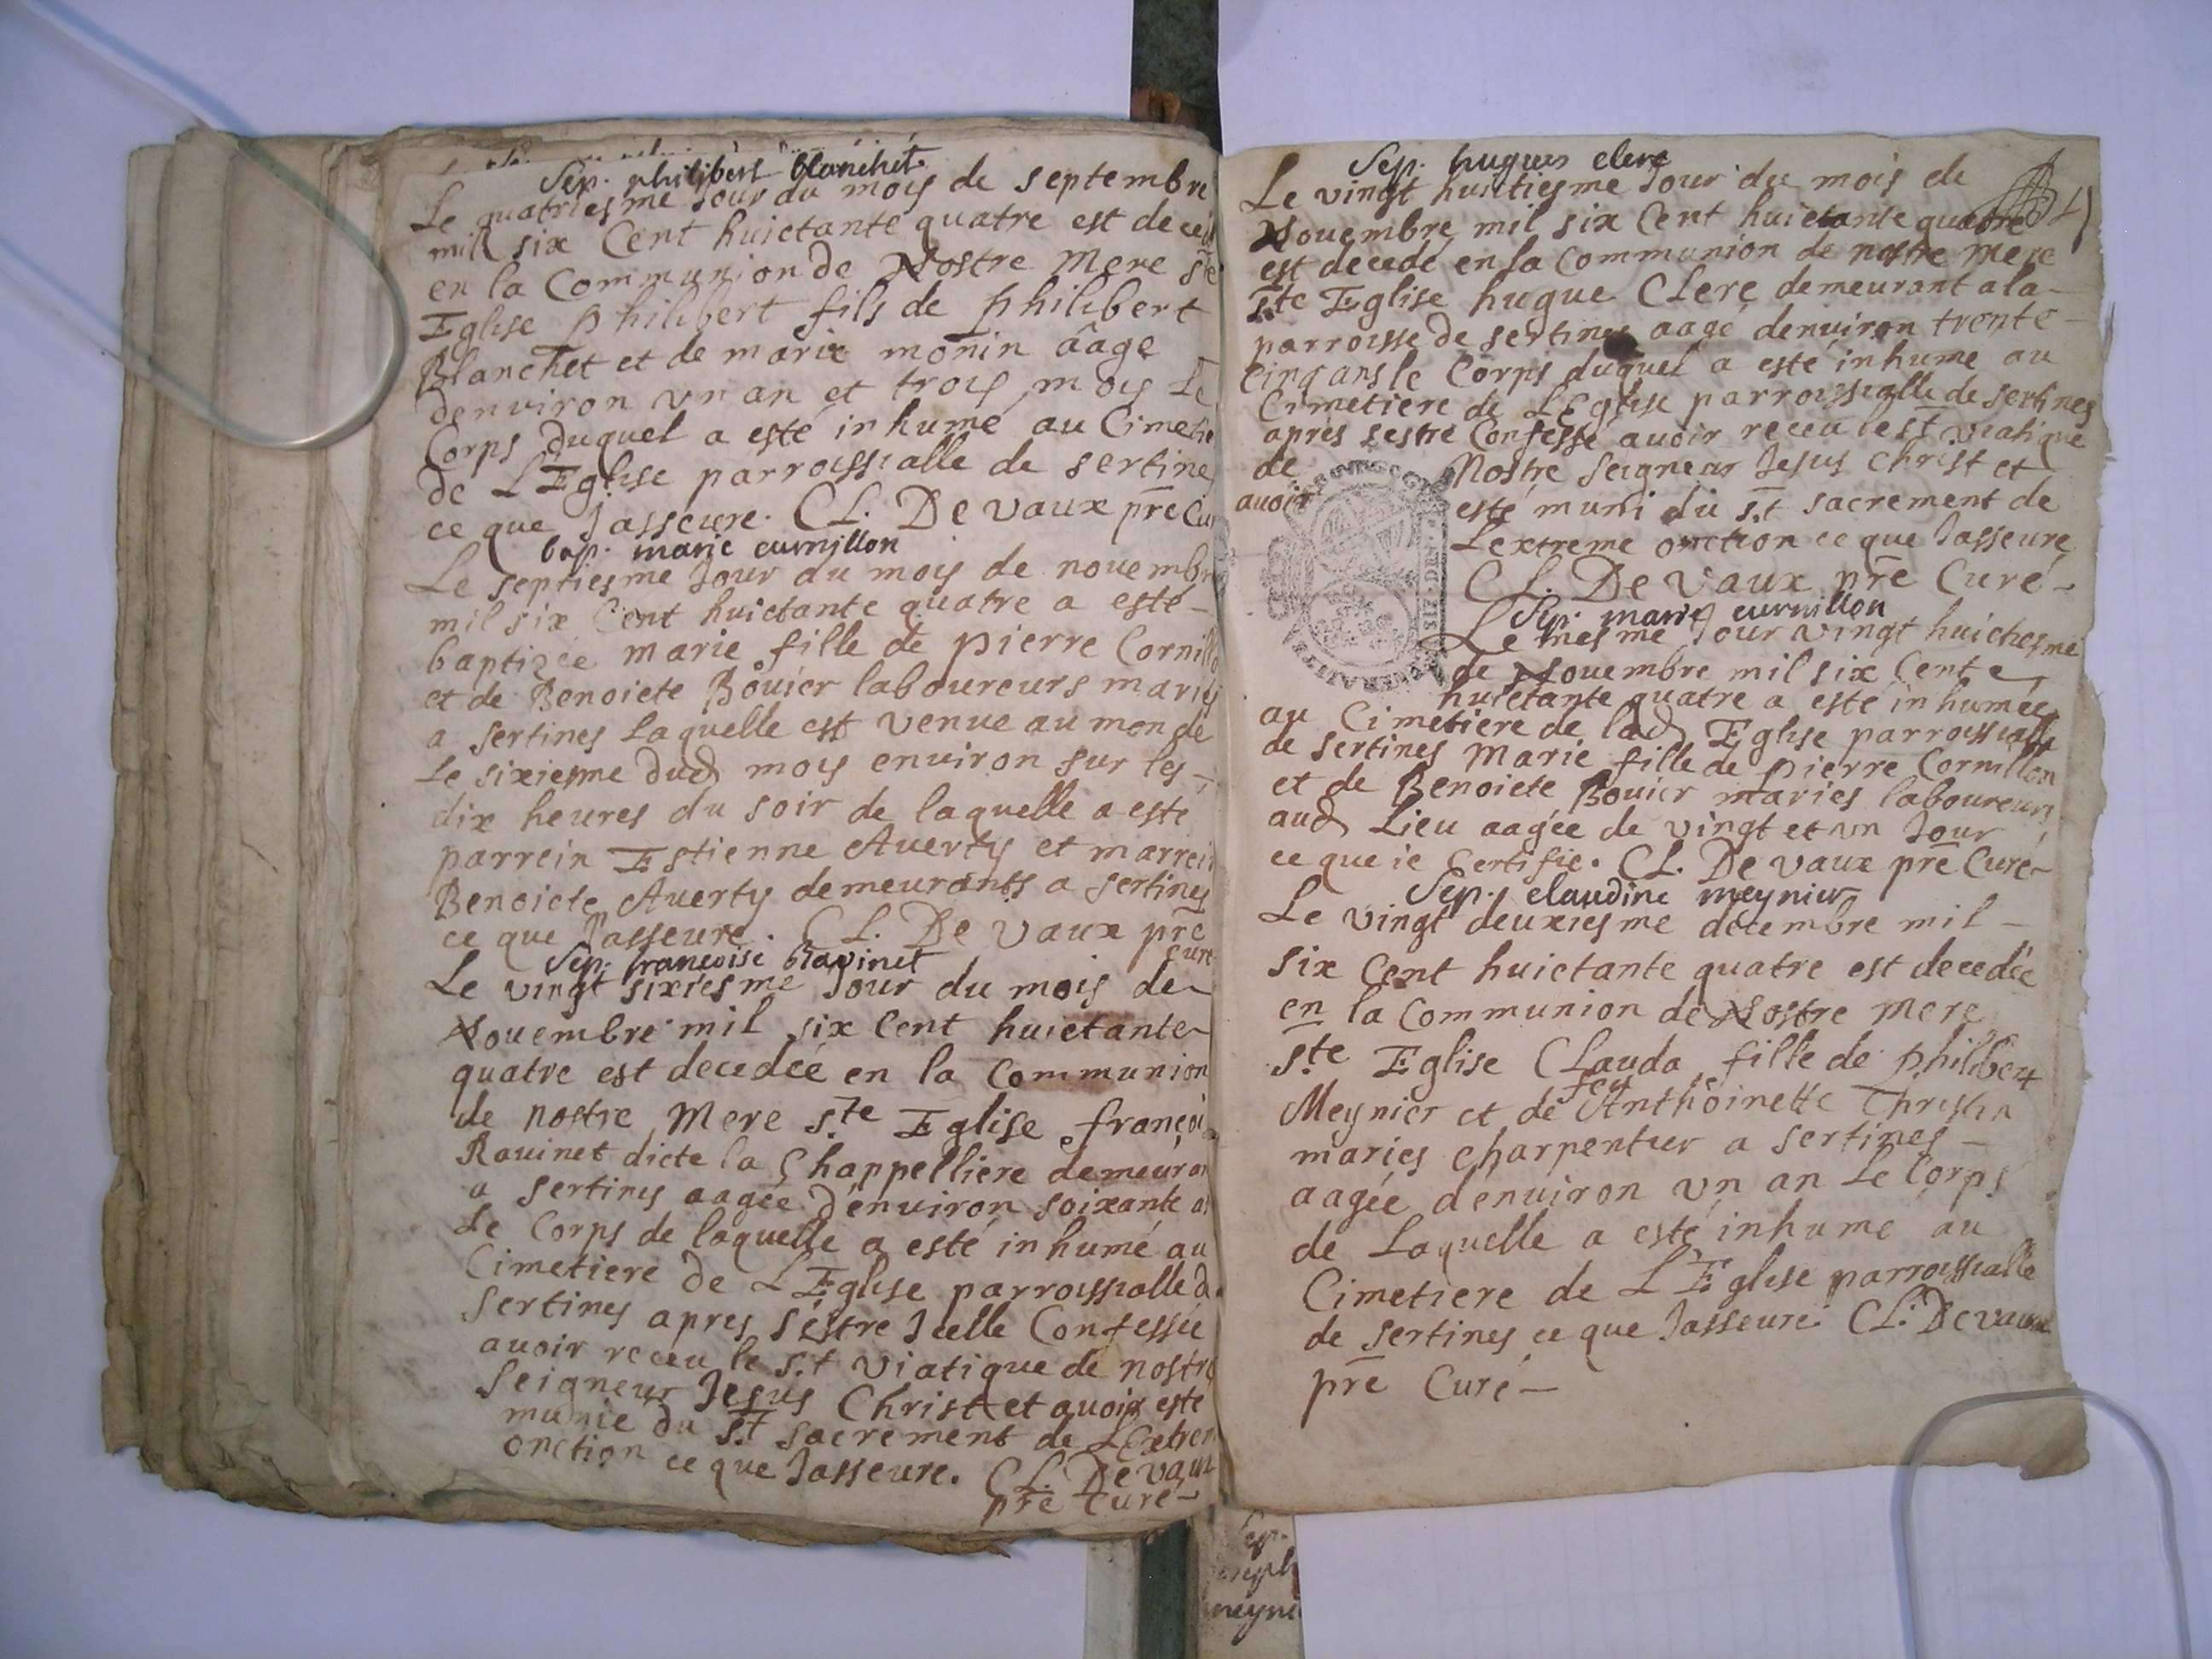 Sep. philibert blanchet
Le quatriesme Jour du moys de septembre
mil six Cent huictante quatre est decedé
en la Communion de Nostre Mere ste
Eglise philibert fils de philibert
Blanchet et de marie monin âage
denuiron vn an et troys moys Le
Corps duquel a esté inhumé au Cimetie
de L'Eglise parroissialle de sertines
ce que Jasseure. CL. De vaux pre Cur
bap. marie curnillon
Le septiesme Jour du moys de nouembre
mil six Cent huictante quatre a esté
baptizée marie fille de pierre Cornillo
et de Benoicte Bouier laboureurs maries
a sertines laquelle est venue au monde
Le sixiesme dud moys enuiron sur les
dix heures du soir de laquelle a esté
parrein Estienne Auerty et marrein
Benoicte Auerty demeurants a sertines
ce que Jasseure. CL. De vaux pre
curé
Sep. francoise Ravinet
Le vingt sixiesme Jour du mois de
Nouembre mil six Cent huictante
quatre est decedée en la Communion
de nostre Mere s.te Eglise françoi
Rauinet dicte la Chappelliere demeuran
a sertines aagée d'enuiron soixante a
Le Corps de laquelle a esté inhumé au
Cimetiere de L'Eglise parroissialle d
sertines apres s'estre Jcelle Confessée
auoir receu le s.t viatique de nostre
Seigneur Jesus Christ et auoir esté
munie du s.t sacrement de L'Extrem
onction ce que Jasseure. CL. De vaux
pre Curé
Sep. hugues clerc
Le vingt huictiesme Jour du mois de
Nouembre mil six Cent huictante quatre
est decedé en la Communion de nostre mere
s.te Eglise hugue Clerc demeurant a la
parroisse de sertines aagé denuiron trente
Cinq ans le Corps duquel a esté inhume au
Cimetiere de L'Eglise parroissialle de sertines
apres s'estre Confessé auoir receu le s.t viatique
de Nostre Seigneur Jesus Christ et
auoir esté muni du s.t sacrement de
L'extreme onction ce que Jasseure
CL. De vaux pre Curé
Sep. marie curnillon
Le mesme Jour vingt huictiesme
de Nouembre mil six Cent
huictante quatre a esté inhumée
au Cimetiere de lad Eglise parroissialle
de sertines Marie fille de pierre Cornillon
et de Benoicte Bouier maries laboureurs
aud Lieu aagée de vingt et vn Jour
ce que ie Certifie. CL. De vaux pre Curé
Sep. claudine meynier
Le vingt deuxiesme décembre mil
six Cent huictante quatre est decedée
en la Communion de Nostre Mere
s.te Eglise Clauda fille de philibert
feu
Meynier et de Anthoinette Thristin
maries charpentier a sertines
aagée d'enuiron vn an Le Corps
de Laquelle a esté inhumé au
Cimetiere de L'Eglise parroissialle
de sertines ce que Jasseure. CL. De vaux
pre Curé
Sep.
meyni